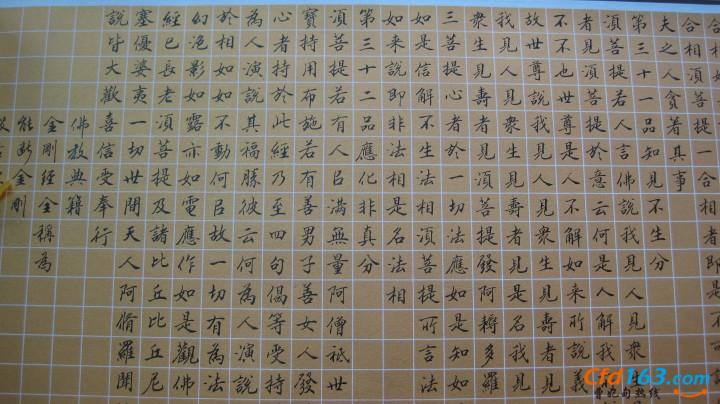 合相須菩提一合相者即是
夫之人貪著其事
第三十一品知見不生分
須菩提若人言佛說我見人見眾
者見須菩提於意云何是人解我
不不也世尊是人不解如來所說義
故世尊說我見人見眾生見壽者見
我見人見眾生見壽者見是名我見
眾生見壽者見須菩提發阿耨多羅
三菩提心者於一切法應如是知如
如是信解不生法相須菩提所言法
如來說即非法相是名法相
第三十二品應化非真分
須菩提若有人以滿無量阿僧祇世
寶持用布施若有善男子善女人發
心者持於此經乃至四句偈等受持
為人演說其福勝彼云何為人演說
於相如如不動何以故一切有為法
幻泡影如露亦如電應作如是觀佛
經已長老須菩提及諸比丘比丘尼
塞優婆夷一切世間天人阿脩羅聞
說皆大歡喜信受奉行
佛教典籍
金剛經全稱為
能斷金剛
Cfd163.com
曹妃甸热线